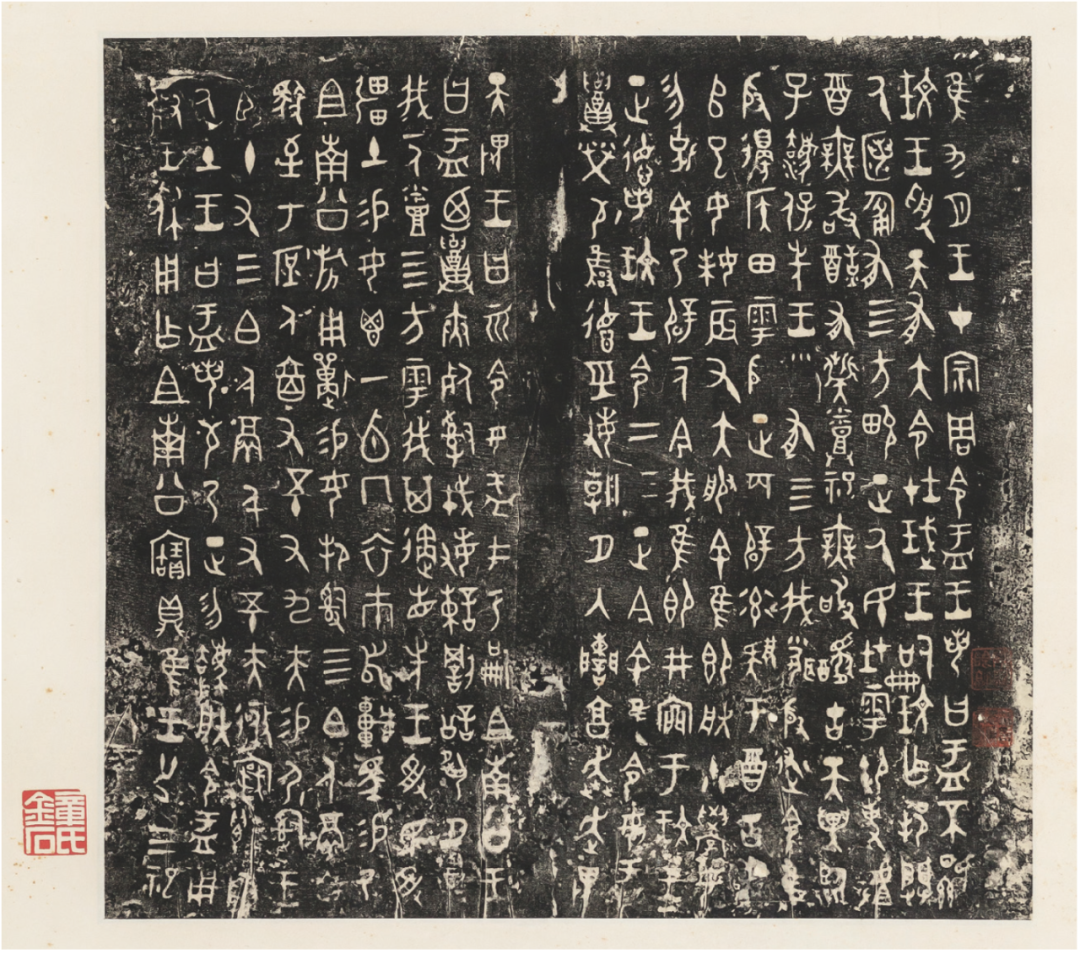 隹九月王才宗周令盂王若曰盂不顯
玟王受天有大令在珷王嗣玟乍邦闢
厥匿匍有四方畯正厥民在雩御事𠭯
酉無敢酖有祡烝祀無敢醻古天異臨
子灋保先王有四方我聞殷述令隹
殷邊侯田雩殷正百辟率肄于酉古喪
𠂤已女妹辰又大服余隹即朕小學女
勿余乃辟一人今我隹即井于玟王
正德若玟王令二三正今余隹令女盂
召榮敬雍德巠敏朝夕入讕享奔走畏
天畏王曰令女盂井乃嗣且南公王
曰盂迺召夾死𤔲戎敏諫罰訟夙夕召
我一人烝四方雩我其遹省先王受民受
彊土易女鬯一卣冂衣巿舄車馬易乃
且南公旂用狩易女邦𤔲四白人鬲自
馭至于庶人六百又五十又九夫易尸𤔲王
臣十又三白人鬲千又五十夫自
厥土王曰盂若敬乃正勿灋朕令盂用
對王休用乍且南公寶鼎隹王廿又三祀
童氏金石